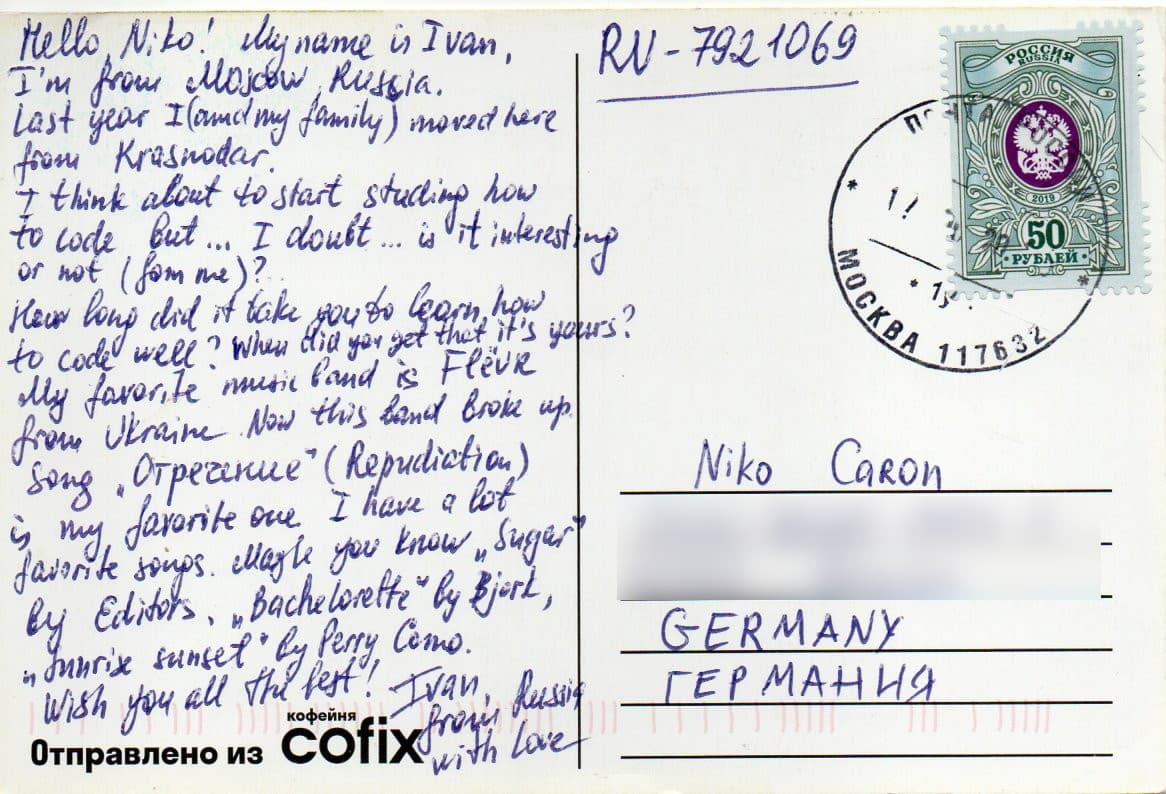 Hello, Niko! My name is Ivan,
I'm from Moscow, Russia.
Last year I (and my family) moved here
from Krasnodar.
I think about to start studing how
to code but... I doubt... is it interesting
or not (fom me)?
How long did it take you to learn how
to code well? When did you get that it's yours?
My favorite music band is Flëur
from Ukraine. Now this band broke up.
Song „Отречение" (Repudiation)
is my favorite one. I have a lot
favorite songs. Maybe you know „Sugar"
by Editors, „Bachelorette" by Bjork,
„Sunrise sunset" by Perry Como.
Wish you all the best! Ivan,
from Russia
with Love
Отправлено из
кофейня
cofix
RU-7921069
РОССИЯ
RUSSIA
2019
50
РУБЛЕЙ
МОСКВА 117632
Niko Caron
GERMANY
ГЕРМАНИЯ